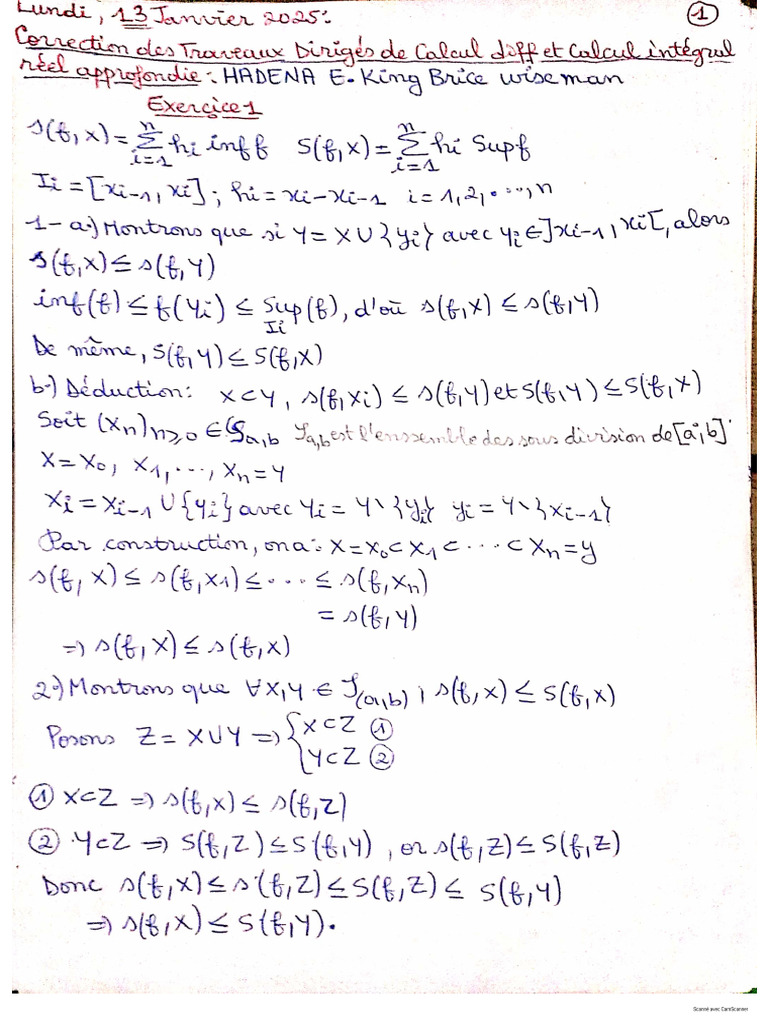 Lundi, 13 Janvier 2025: ①
Correction des Travaux Dirigés de Calcul diff et Calcul intégral
réel approfondie: HADENA E. King Brice wiseman
Exercice 1
s(f,X) = ∑_{i=1}^{n} hi inf f S(f,X) = ∑_{i=1}^{n} hi Sup f
Ii = [xi-1, xi] ; hi = xi - xi-1 i = 1,2,....,n
1- a.) Montrons que si Y = X ∪ {yi} avec yi ∈ ]xi-1, xi[, alors
s(f,X) ≤ s(f,Y)
inf(f) ≤ f(yi) ≤ Sup_{Ii}(f), d'où s(f,X) ≤ s(f,Y)
De même, S(f,Y) ≤ S(f,X)
b.) Déduction: X⊂Y, s(f,Xi) ≤ s(f,Y) et S(f,Y) ≤ S(f,X)
Soit (Xn)n≥0 ∈ 𝒮a,b 𝒮a,b est l'enssemble des sous division de [a,b]
X = X0, X1, ..., Xn = Y
Xi = Xi-1 ∪ {yi} avec Yi = Y \ {yi} yi = Y \ {Xi-1}
Par construction, on a: X = X0 ⊂ X1 ⊂ ... ⊂ Xn = Y
s(f,X) ≤ s(f,X1) ≤ ... ≤ s(f,Xn)
= s(f,Y)
=> s(f,X) ≤ s(f,X)
2.) Montrons que ∀X,Y ∈ 𝒮(a,b) ; s(f,X) ≤ S(f,X)
Posons Z = X∪Y => { X⊂Z ①
Y⊂Z ②
① X⊂Z => s(f,X) ≤ s(f,Z)
② Y⊂Z => S(f,Z) ≤ S(f,Y), or s(f,Z) ≤ S(f,Z)
Donc s(f,X) ≤ s(f,Z) ≤ S(f,Z) ≤ S(f,Y)
=> s(f,X) ≤ S(f,Y).
Scanné avec CamScanner